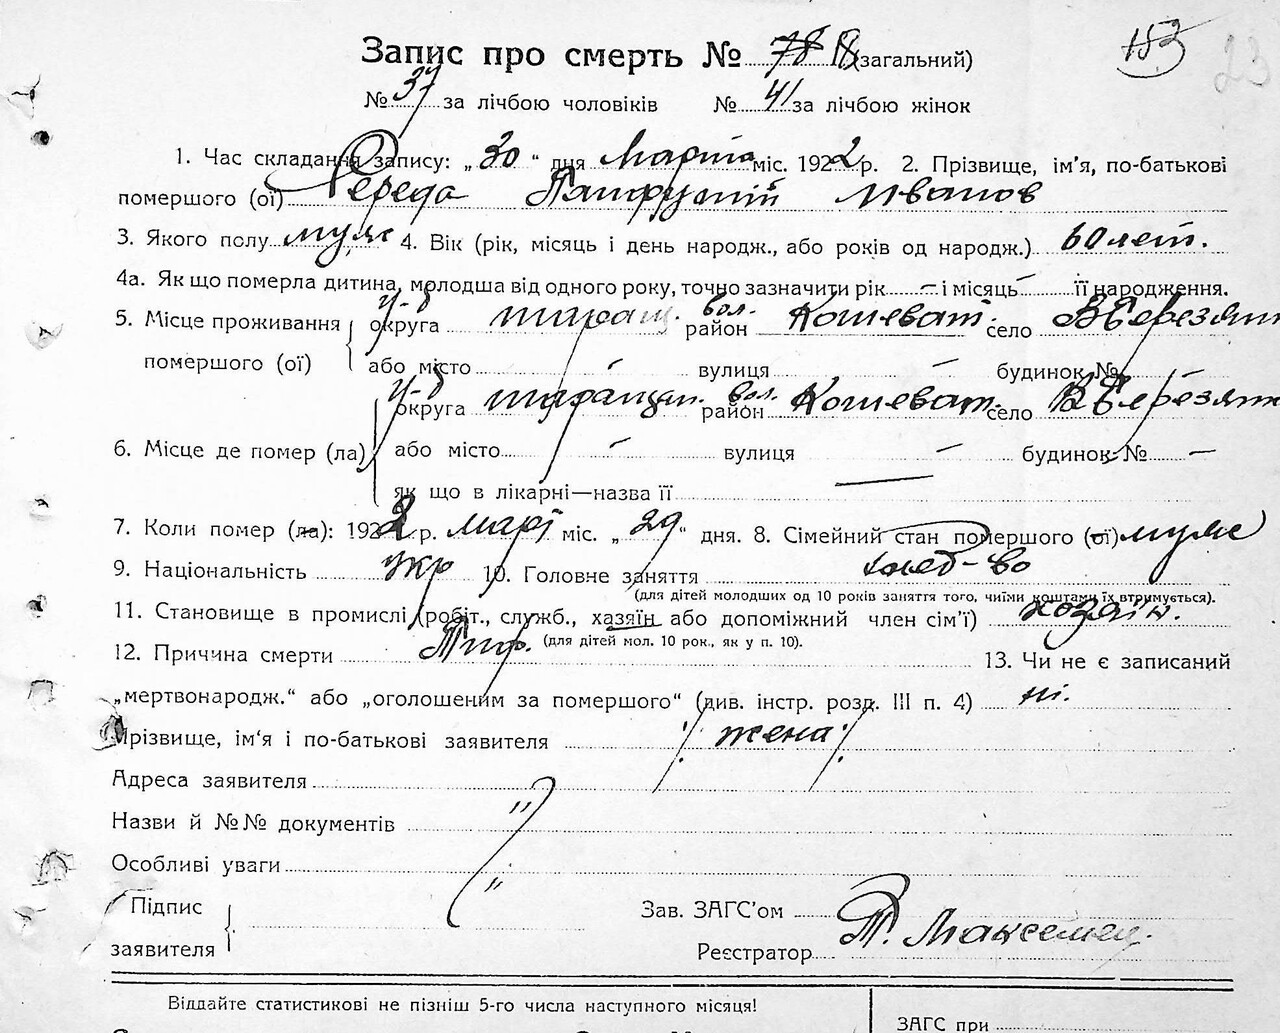 153 23
Запис про смерть № 78 (загальний)
№ 37 за лічбою чоловіків № 41 за лічбою жінок
1. Час складання запису: „30“ дня Марта міс. 1922 р. 2. Прізвище, ім’я, по-батькові
помершого (ої) Середа Пафнутий Иванов
3. Якого полу муж 4. Вік (рік, місяць і день народж., або років од народж.) 60 лет.
4а. Як що померла дитина, молодша від одного року, точно зазначити рік — і місяць — її народження.
5. Місце проживання у-д округа таращ. вол. район Кошеват. село ВБерезян
помершого (ої) або місто — вулиця — будинок № —
у-д округа таращан. вол. район Кошеват. село ВБерезян
6. Місце де помер (ла) або місто — вулиця — будинок № —
як що в лікарні—назва її —
7. Коли помер (ла): 1922 р. март міс. „29“ дня. 8. Сімейний стан помершого (ої)
9. Національність укр 10. Головне заняття хлед-во
(для дітей молодших од 10 років заняття того, чиїми коштами їх втримується).
11. Становище в промислі (робіт., служб., хазяїн або допоміжний член сім’ї) хозяїн.
12. Причина смерти Тиф. (для дітей мол. 10 рок., як у п. 10). 13. Чи не є записаний
„мертвонародж.“ або „оголошеним за помершого“ (див. інстр. розд. III п. 4) ні.
Прізвище, ім’я і по-батькові заявителя /: жена :/
Адреса заявителя
Назви й №№ документів "
Особливі уваги "
Підпис Зав. ЗАГС’ом
заявителя Реєстратор Т. Максемец.
Віддайте статистикові не пізніш 5-го числа наступного місяця!
ЗАГС при